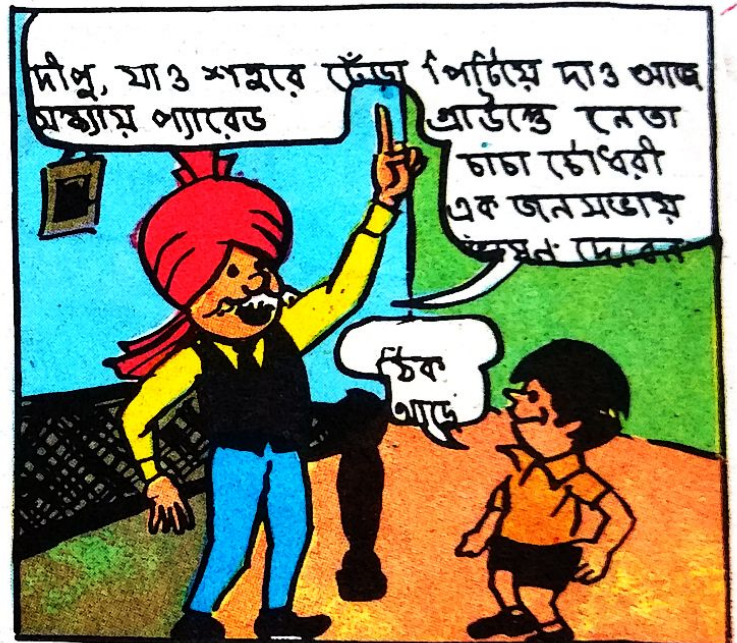 দীপু, যাও শহরে ঢেঁড়া পিটিয়ে দাও আজ
সন্ধ্যায় প্যারেড গ্রাউন্ডে নেতা
চাচা চৌধরী
এক জনসভায়
ভাষন দেবেন
ঠিক
আছে